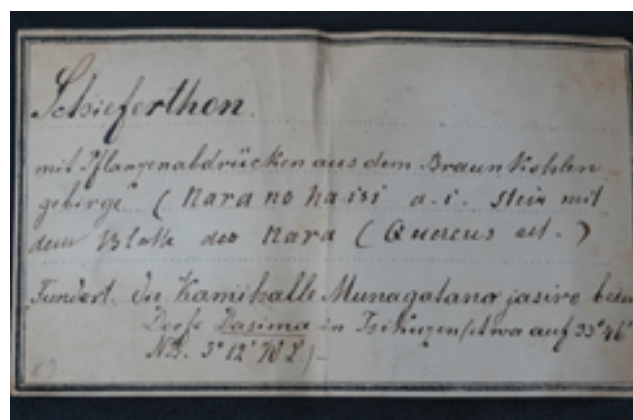 Schieferthon.
mit Pflanzenabdrücken aus dem Braunkohlen
gebirge (Nara no ha isi d. i. Stein mit
dem Blatte des Nara (Quercus
Fundort. Die Kamihalle Munagatano jasiro beim
Dorfe Tasima in Tsikuzen (etwa auf 33° 46'
NB. 5° 12' W L)
89.